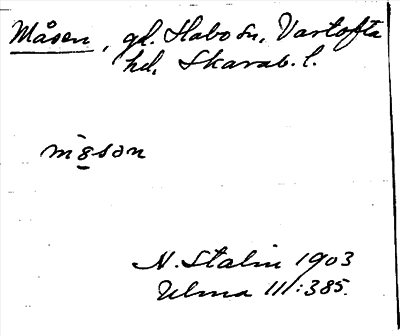 Måsen, gl. Habo sn, Vartofta
hd, Skarab. l.
N. Stalin 1903
Ulma 111:385.